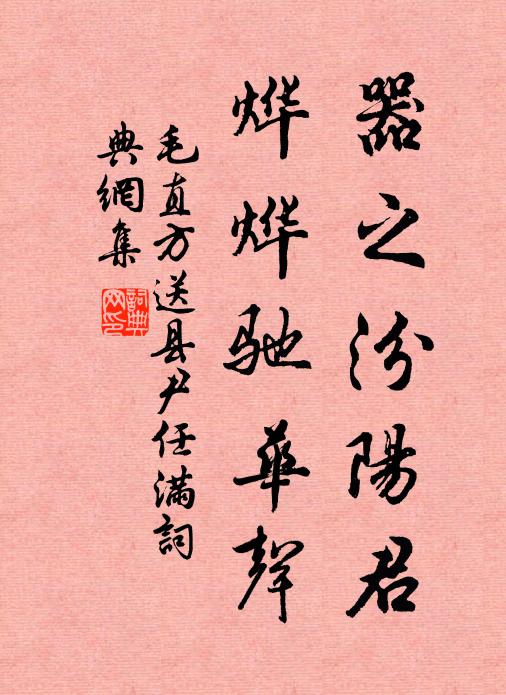 器之汾陽君
烨烨驰華聲
毛直方送县尹任满詞
典網集
詞典
网印